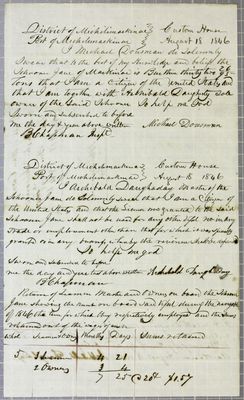 District of Michilimackinac } Custom House
Port of Michilimackinac } August 18 1846
I Michael Dousman do Solemnly
Swear that to the best of my knowledge and belief the
Schooner Jane of Mackinac is Burthen thirty two
tons that I am a Citizen of the United States and
that I am together with Archibald Daughaday Sole
owner of the said Schooner So help me God
Sworn and subscribed to before
me the day & year above written Michael Dousman
B Chapman
District of Michilimackinac } Custom House
Port of Michilimackinac } August 18 1846
I Archibald Daughaday Master of the
Schooner Jane do Solemnly Swear that I am a Citizen of
the United States and that the license now granted to the said
Schooner Jane shall not be used for any other vessel or in any
Trade or employment other than that for which it is
granted or in any whereby the revenue
So help me god
Sworn and subscribed to before
me the day and year as above written Archibald Daughaday
B Chapman
Return of Seamen and on board the Schooner
Jane since on board Said Vessel during the
of 1846 the time for which they respectively employed and the Sums
retained out of the wages of
Seamen Months Days Sums retained
5 4 21
2 Owners 3 4
7 25 20¢ $1.57